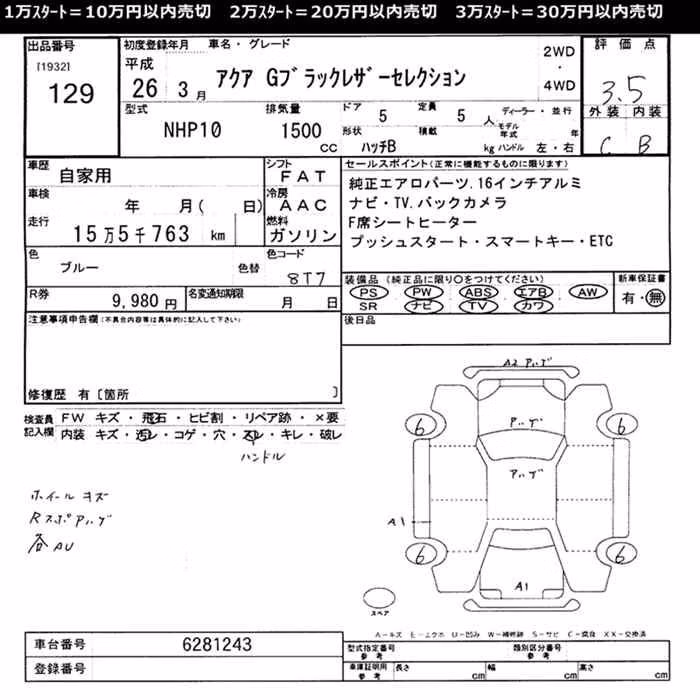 1万ｽﾀｰﾄ＝10万円以内売切　2万ｽﾀｰﾄ＝20万円以内売切　3万ｽﾀｰﾄ＝30万円以内売切
出品番号
[1932]
129
初度登録年月 車名・グレード
平成
26 3月 アクア Gﾌﾞラックレザーセレクション
2WD
・
4WD
評価点
3.5
外装 内装
C B
型式
NHP10
排気量
1500
cc
ドア 5 定員 5 人
形状 ハッチB 積載 kg
ディーラー・並行
モデル年式 年
ハンドル 左・右
車歴 自家用
車検 年 月( 日)
走行 15万5千763 km
シフト
FAT
冷房
AAC
燃料
ガソリン
色 ブルー 色替
色コード
8T7
R券 9,980円
名変通知期限 月 日
セールスポイント(正常に機能するものに限ります)
純正エアロパーツ.16インチアルミ
ナビ・TV.バックカメラ
F席シートヒーター
プッシュスタート・スマートキー・ETC
装備品 (純正品に限り○をつけてください)
PS ・ PW ・ ABS ・ エアB ・ AW
SR ナビ ・ TV ・ カワ
新車保証書
有・無
後日品
注意事項申告欄(不具合内容等は具体的に記入して下さい)
修復歴 有〔箇所 〕
検査員記入欄
FW キズ・飛石・ヒビ割・リペア跡・×要
内装 キズ・汚レ・コゲ・穴・スレ・キレ・破レ
ハンドル
ホイールキズ
Rスポアハゲ
各AU
A2 ハゲ
ハゲ
ハゲ
6
6
6
6
A1
A1
スペア
A－キズ E－エクボ U－凹み W－補修跡 S－サビ C－腐食 XX－交換済
車台番号 6281243
登録番号
型式指定番号 参考
類別区分番号 参考
車庫証明用 参考 長さ cm 幅 cm 高さ cm